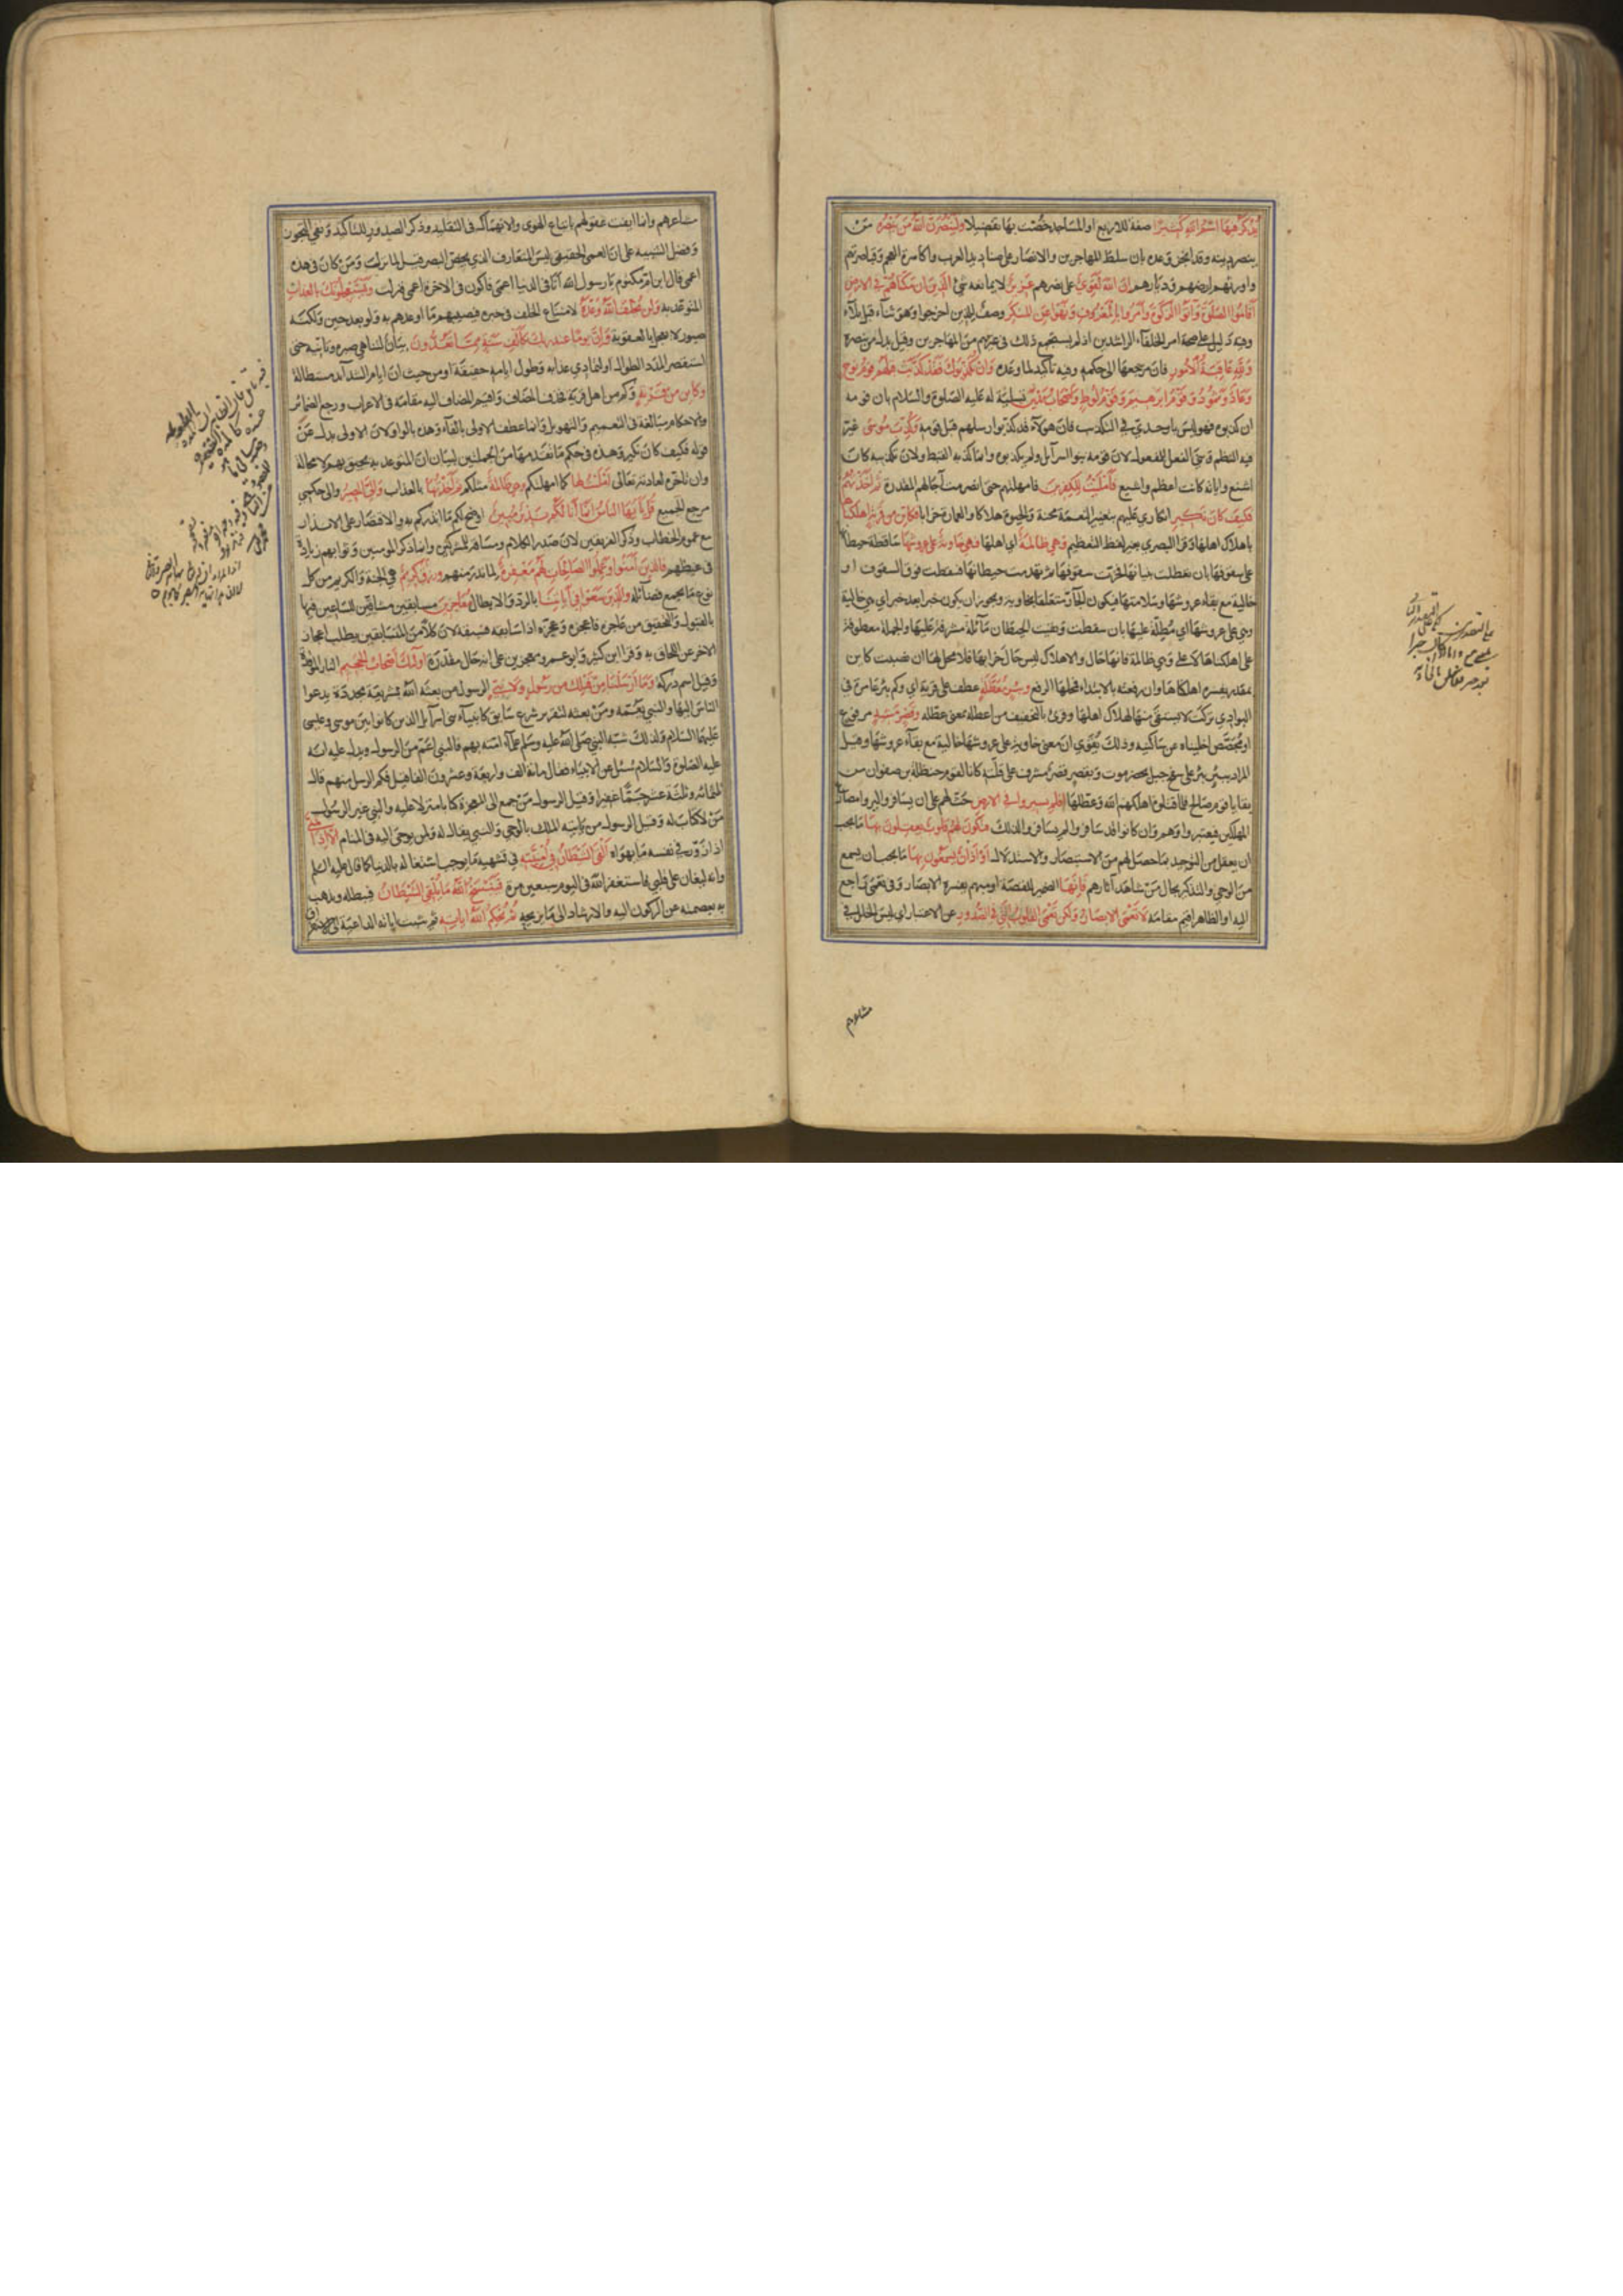 يُذْكَرُ فِيهَا اسْمُ اللهِ كَثِيرًا صفة للاربع او لمساجد خُصّت بها تفضيلا وَلَيَنْصُرَنَّ اللهُ مَنْ يَنْصُرُهُ مَنْ
ينصر دينه وقد انجز وعده بان سلط المهاجرين والانصار على صناديد العرب واكاسرة العجم وقياصرتهم
واورثهم ارضهم وديارهم اِنَّ اللهَ لَقَوِيٌّ على نصرهم عَزِيزٌ لا يمانعه شئ الَّذِينَ اِنْ مَكَّنَّاهُمْ فِي الارْضِ
اَقَامُوا الصَّلٰوةَ وَآتَوُا الزَّكٰوةَ وَاَمَرُوا بِالْمَعْرُوفِ وَنَهَوْا عَنِ الْمُنْكَرِ وصف للذين اخرجوا وهو ثناء قبل بلاء
وفيه دليل على صحة امر الخلفاء الراشدين اذ لم يستجمع ذلك غيرهم من المهاجرين وقيل بدل من ينصره
وَلِلّٰهِ عَاقِبَةُ الْاُمُورِ فان مرجعها الى حكمه وفيه تاكيد لما وعده وَاِنْ يُكَذِّبُوكَ فَقَدْ كَذَّبَتْ قَبْلَهُمْ قَوْمُ نُوحٍ
وَعَادٌ وَثَمُودُ وَقَوْمُ اِبْرٰهِيمَ وَقَوْمُ لُوطٍ وَاَصْحَابُ مَدْيَنَ تسلية له عليه الصلوة والسلام بان قومه
ان كذبوه فهو ليس باوحدي في التكذيب فان هؤلاء قد كذبوا رسلهم قبل قومه وَكُذِّبَ مُوسَى غيّر
فيه النظم وبني الفعل للمفعول لان قومه بنوا اسرآئل ولم يكذبوه وانما كذبه القبط ولان تكذيبه كان
اشنع واياته كانت اعظم واشيع فَاَمْلَيْتُ لِلْكٰفِرِينَ فامهلتهم حتى انصرمت آجالهم المقدرة ثُمَّ اَخَذْتُهُمْ
فَكَيْفَ كَانَ نَكِيرِ انكاري عليهم بتغيير النعمة محنة والحيوة هلاكا والعمارة خرابا فَكَاَيِّنْ مِنْ قَرْيَةٍ اَهْلَكْنَاهَا
باهلاك اهلها وقرا البصري بغير لفظ التعظيم وَهِيَ ظَالِمَةٌ اي اهلها فَهِيَ خَاوِيَةٌ عَلَى عُرُوشِهَا ساقطة حيطانها
على سقوفها بان تعطلت بنيانها فخرت سقوفها ثم تهدمت حيطانها فسقطت فوق السقوف او
خالية مع بقاء عروشها وسلامتها فيكون الجار متعلقا بخاوية ويجوز ان يكون خبرا بعد خبر اي هي خالية
وهي على عروشها اي مُطِلّة عليها بان سقطت وبقيت الحيطان مآئلة مشرفة عليها والجملة معطوفة
على اهلكناها لا على وهي ظالمة فانها حال والاهلاك ليس حال خرابها فلا محل لها ان نصبت كاين
بمقدر يفسره اهلكناها وان رفعته بالابتداء فمحلها الرفع وَبِئْرٍ مُعَطَّلَةٍ عطف على قرية اي وكم بئر عامرة في
البوادي تركت لا يستقى منها لهلاك اهلها وقرئ بالتخفيف من اعطله بمعنى عطّله وَقَصْرٍ مَشِيدٍ مرفوع
او مجصّص اخليناه عن ساكنيه وذلك يقوي ان معنى خاوية على عروشها خالية مع بقاء عروشها وقيل
المراد ببئر بئر على سفح جبل بحضرموت وبقصر قصر مشرف على قلته كانا لقوم حنظلة بن صفوان من
بقايا قوم صالح فلما قتلوه اهلكهم الله وعطلها اَفَلَمْ يَسِيرُوا فِي الارْضِ حثّ لهم على ان يسافروا ليروا مصارع
المهلكين فيعتبروا وهم وان كانوا قد سافروا لم يسافروا لذلك فَتَكُونَ لَهُمْ قُلُوبٌ يَعْقِلُونَ بِهَا ما يجب
ان يعقل من التوحيد بما حصل لهم من الاستبصار والاستدلال اَوْ اٰذَانٌ يَسْمَعُونَ بِهَا ما يجب ان يسمع
من الوحي والتذكير بحال من شاهد آثارهم فَاِنَّهَا الضمير للقصة او مبهم يفسره الابصار وفي تعمى راجع
اليه او الظاهر اقيم مقامه لَا تَعْمَى الْاَبْصَارُ وَلٰكِنْ تَعْمَى الْقُلُوبُ الَّتِي فِي الصُّدُورِ عن الاعتبار اي ليس الخلل في
مشاعرهم
مشاعرهم وانما ايفت عقولهم باتباع الهوى والانهماك في التقليد وذكر الصدور للتاكيد ونفي التجوز
وفضل التنبيه على ان العمى الحقيقي ليس المتعارف الذي يخص البصر قيل لما نزلت ومن كان في هذه
اعمى قال ابن ام مكتوم يا رسول الله انا في الدنيا اعمى فاكون في الاخرة اعمى فنزلت وَيَسْتَعْجِلُونَكَ بِالْعَذَابِ
المتوعد به وَلَنْ يُخْلِفَ اللهُ وَعْدَهُ لامتناع الخلف في خبره فيصيبهم ما اوعدهم به ولو بعد حين ولكنه
صبور لا يعجل بالعقوبة وَاِنَّ يَوْمًا عِنْدَ رَبِّكَ كَاَلْفِ سَنَةٍ مِمَّا تَعُدُّونَ بيان لتناهي صبره وتانيه حتى
استقصر المدد الطوال او لتمادي عذابه وطول ايامه حقيقة او من حيث ان ايام الشدآئد مستطالة
وَكَاَيِّنْ مِنْ قَرْيَةٍ وكم من اهل قرية فحذف المضاف واقيم المضاف اليه مقامه في الاعراب ورجع الضمائر
والاحكام مبالغة في التعميم والتهويل وانما عطف الاولى بالفاء وهذه بالواو لان الاولى بدل عن
قوله فكيف كان نكير وهذه في حكم ما تقدمها من الجملتين لبيان ان المتوعد به يحيق بهم لا محالة
وان تاخره لعادته تعالى اَمْلَيْتُ لَهَا كما امهلتكم وَهِيَ ظَالِمَةٌ مثلكم ثُمَّ اَخَذْتُهَا بالعذاب وَاِلَيَّ الْمَصِيرُ والى حكمي
مرجع الجميع قُلْ يَا اَيُّهَا النَّاسُ اِنَّمَا اَنَا لَكُمْ نَذِيرٌ مُبِينٌ اوضح لكم ما انذركم به والاقتصار على الانذار
مع عموم الخطاب وذكر الفريقين لان صدر الكلام ومساقه للمشركين وانما ذكر المومنين وثوابهم زيادة
في غيظهم فَالَّذِينَ اٰمَنُوا وَعَمِلُوا الصَّالِحَاتِ لَهُمْ مَغْفِرَةٌ لما ندر منهم وَرِزْقٌ كَرِيمٌ هي الجنة والكريم من كل
نوع ما يجمع فضآئله وَالَّذِينَ سَعَوْا فِي اٰيَاتِنَا بالرد والابطال مُعَاجِزِينَ مسابقين مشاقين للساعين فيها
بالقبول والتحقيق من عاجزه فاعجزه وعجّزه اذا سابقه فسبقه لان كلا من المتسابقين يطلب اعجاز
الاخر عن اللحاق به وقرا ابن كثير وابو عمرو معجزين على انه حال مقدرة اُولٰئِكَ اَصْحَابُ الْجَحِيمِ النار الموقدة
وقيل اسم دركه وَمَا اَرْسَلْنَا مِنْ قَبْلِكَ مِنْ رَسُولٍ وَلَا نَبِيٍّ الرسول من بعثه الله بشريعة مجددة يدعوا
الناس اليها والنبي يعمّه ومن بعثه لتقرير شرع سابق كانبياء بني اسرآيل الذين كانوا بين موسى وعيسى
عليهما السلام ولذلك شبّه النبي صلى الله عليه وسلم علماء امته بهم فالنبي اعم من الرسول ويدل عليه انه
عليه الصلوة والسلام سُئل عن الانبياء فقال مائة الف واربعة وعشرون الفا قيل فكم الرسل منهم قال
ثلثمائة وثلثة عشر جمّا غفيرا وقيل الرسول من جمع الى المعجزة كتابا منزلا عليه والنبي غير الرسول
من لا كتاب له وقيل الرسول من ياتيه الملك بالوحي والنبي يقال له ولمن يوحى اليه في المنام اِلَّا اِذَا تَمَنَّى
اذا زوّر في نفسه ما يهواه اَلْقَى الشَّيْطَانُ فِي اُمْنِيَّتِهِ في تشهيه ما يوجب اشتغاله بالدنيا كما قال عليه السلم
وانه ليغان على قلبي فاستغفر الله في اليوم سبعين مرة فَيَنْسَخُ اللهُ مَا يُلْقِي الشَّيْطَانُ فيبطله ويذهب
به بعصمته عن الركون اليه والارشاد الى ما يزيحه ثُمَّ يُحْكِمُ اللهُ اٰيَاتِهِ ثم يثبت اياته الداعية الى الاستغراق